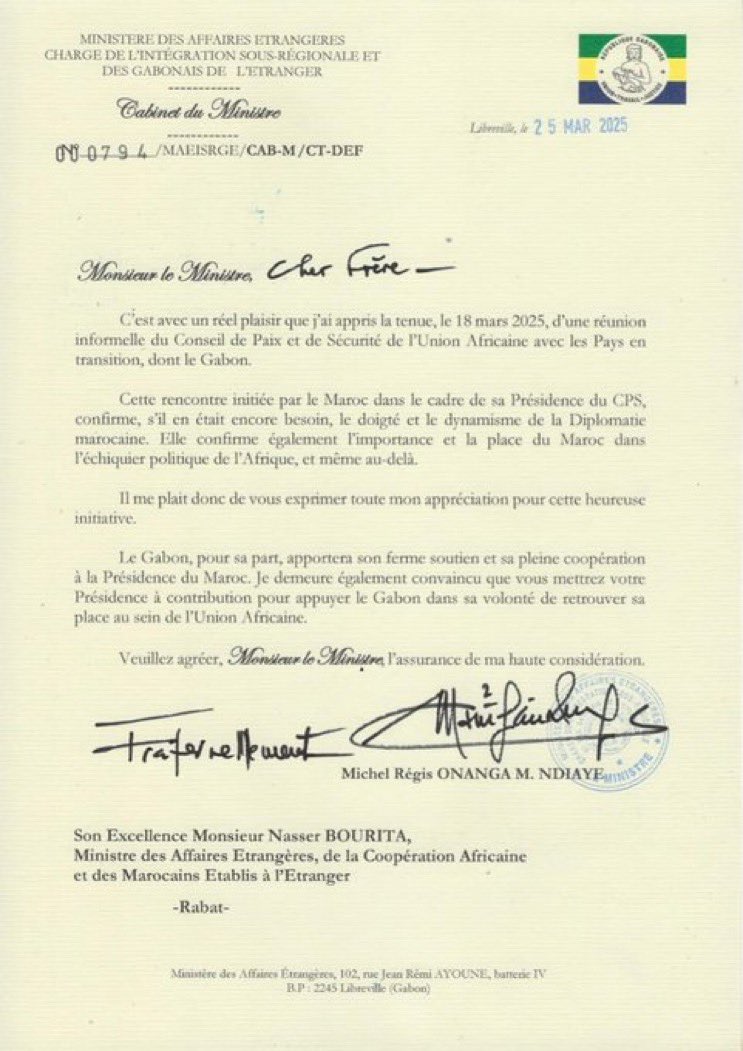 MINISTERE DES AFFAIRES ETRANGERES
CHARGE DE L'INTÉGRATION SOUS-RÉGIONALE ET
DES GABONAIS DE L'ETRANGER
------------
Cabinet du Ministre
------------
N° 0794/MAEISRGE/CAB-M/CT-DEF
REPUBLIQUE GABONAISE
UNION-TRAVAIL-JUSTICE
Libreville, le 25 MAR 2025
Monsieur le Ministre, Cher Frère –
C'est avec un réel plaisir que j'ai appris la tenue, le 18 mars 2025, d'une réunion
informelle du Conseil de Paix et de Sécurité de l'Union Africaine avec les Pays en
transition, dont le Gabon.
Cette rencontre initiée par le Maroc dans le cadre de sa Présidence du CPS,
confirme, s'il en était encore besoin, le doigté et le dynamisme de la Diplomatie
marocaine. Elle confirme également l'importance et la place du Maroc dans
l'échiquier politique de l'Afrique, et même au-delà.
Il me plait donc de vous exprimer toute mon appréciation pour cette heureuse
initiative.
Le Gabon, pour sa part, apportera son ferme soutien et sa pleine coopération
à la Présidence du Maroc. Je demeure également convaincu que vous mettrez votre
Présidence à contribution pour appuyer le Gabon dans sa volonté de retrouver sa
place au sein de l'Union Africaine.
Veuillez agréer, Monsieur le Ministre, l'assurance de ma haute considération.
Fraternellement
Michel Régis ONANGA M. NDIAYE
AFFAIRES ETRANGERES
MINISTRE
Son Excellence Monsieur Nasser BOURITA,
Ministre des Affaires Etrangères, de la Coopération Africaine
et des Marocains Etablis à l'Etranger
-Rabat-
Ministère des Affaires Étrangères, 102, rue Jean Rémi AYOUNE, batterie IV
B.P : 2245 Libreville (Gabon)